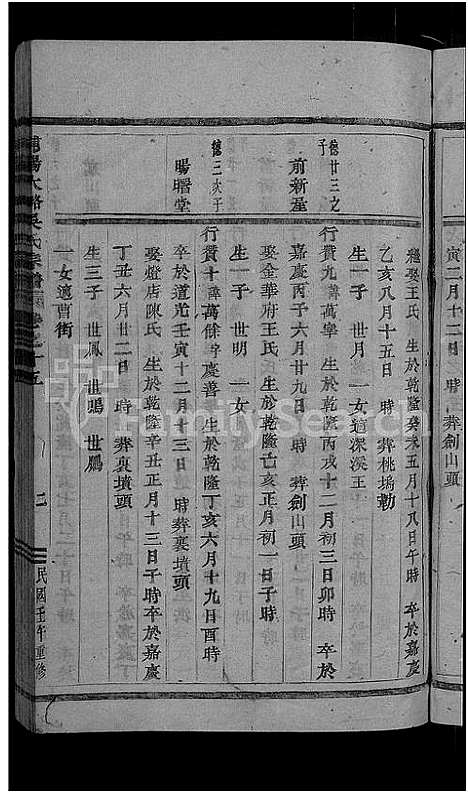 寅二月十二日 時 葬劍山頭
繼娶王氏 生於乾隆癸未五月十八日午時 卒於嘉慶
乙亥八月十五日 時 葬桃塢勒
生一子 世月 一女適深溪王
德廿三之子
前新屋
行贊九諱萬寧 生於乾隆丙戌十二月初三日卯時 卒於
嘉慶丙子六月廿九日 時 葬劍山頭
娶金華府王氏 生於乾隆己亥正月初一日子時
生一子 世明 一女
德三次子
暘曙堂
行贊十諱萬餘字慶善 生於乾隆丁亥六月十九日酉時
卒於道光壬寅十二月十三日 時葬裏墳頭
娶燈店陳氏 生於乾隆辛丑正月十三日子時卒於嘉慶
丁丑六月廿二日 時 葬裏墳頭
生三子 世鳳 世鵾 世鵬
一女適曹街
吳氏宗譜
二
民國壬午重修
FamilySearch